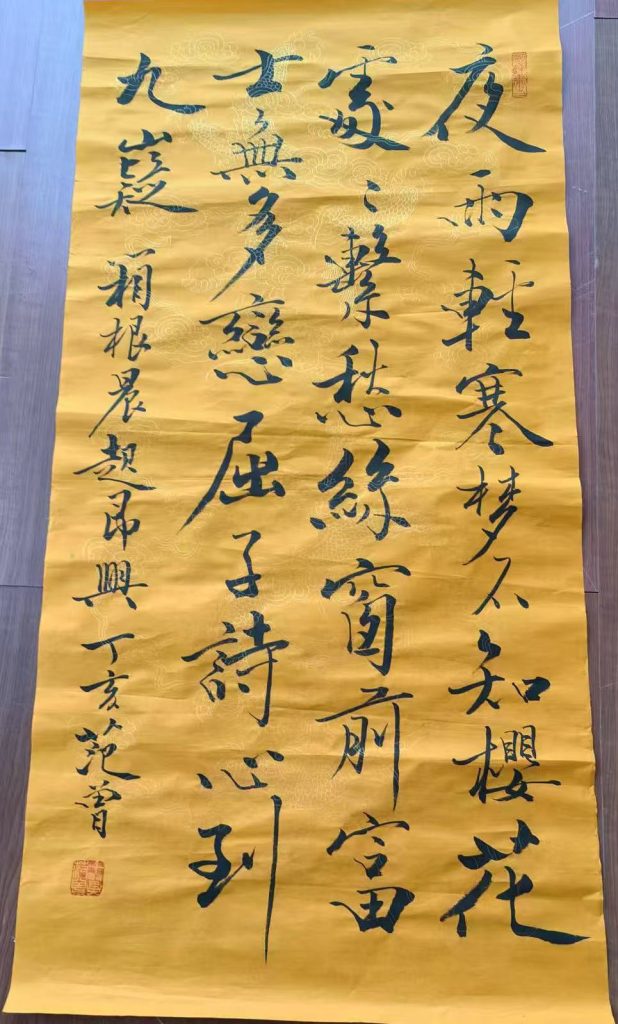 夜雨輕寒梦不知櫻花
處〻繫愁絲窗前富
士無多戀屈子詩心到
九嶷 箱根晨起即興 丁亥 范曾